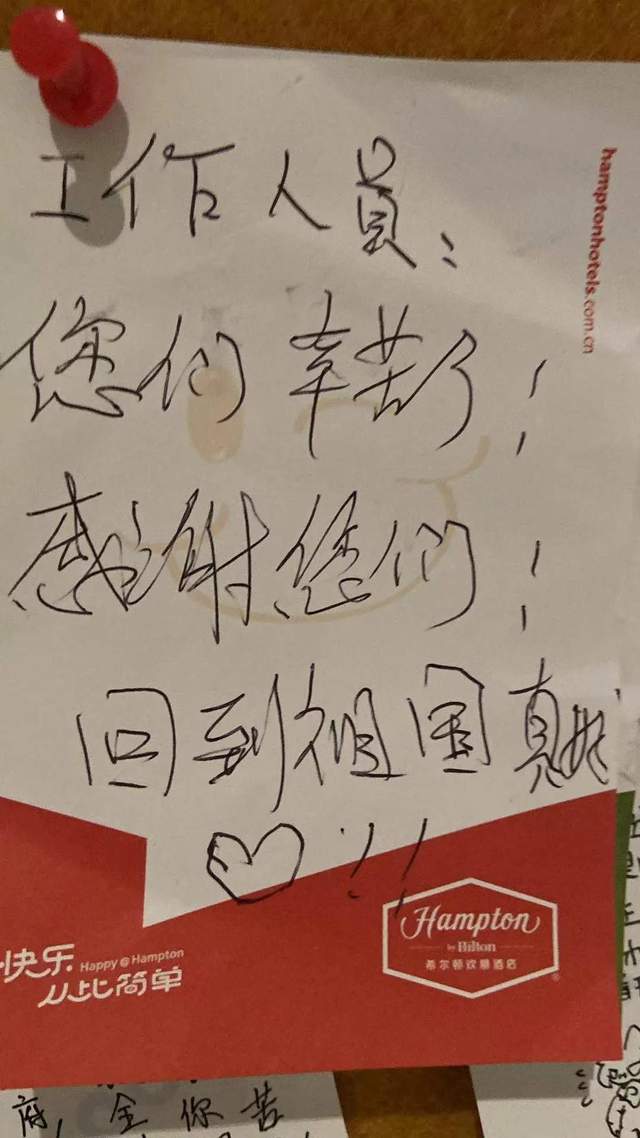 工作人員:
hamptonhotels.com.cn
您们辛苦了!
感谢您们!
回到祖国真好
♡!!
Hampton
by Hilton
希尔顿欢朋酒店
快乐 Happy@Hampton
从此简单
府! 全你苦